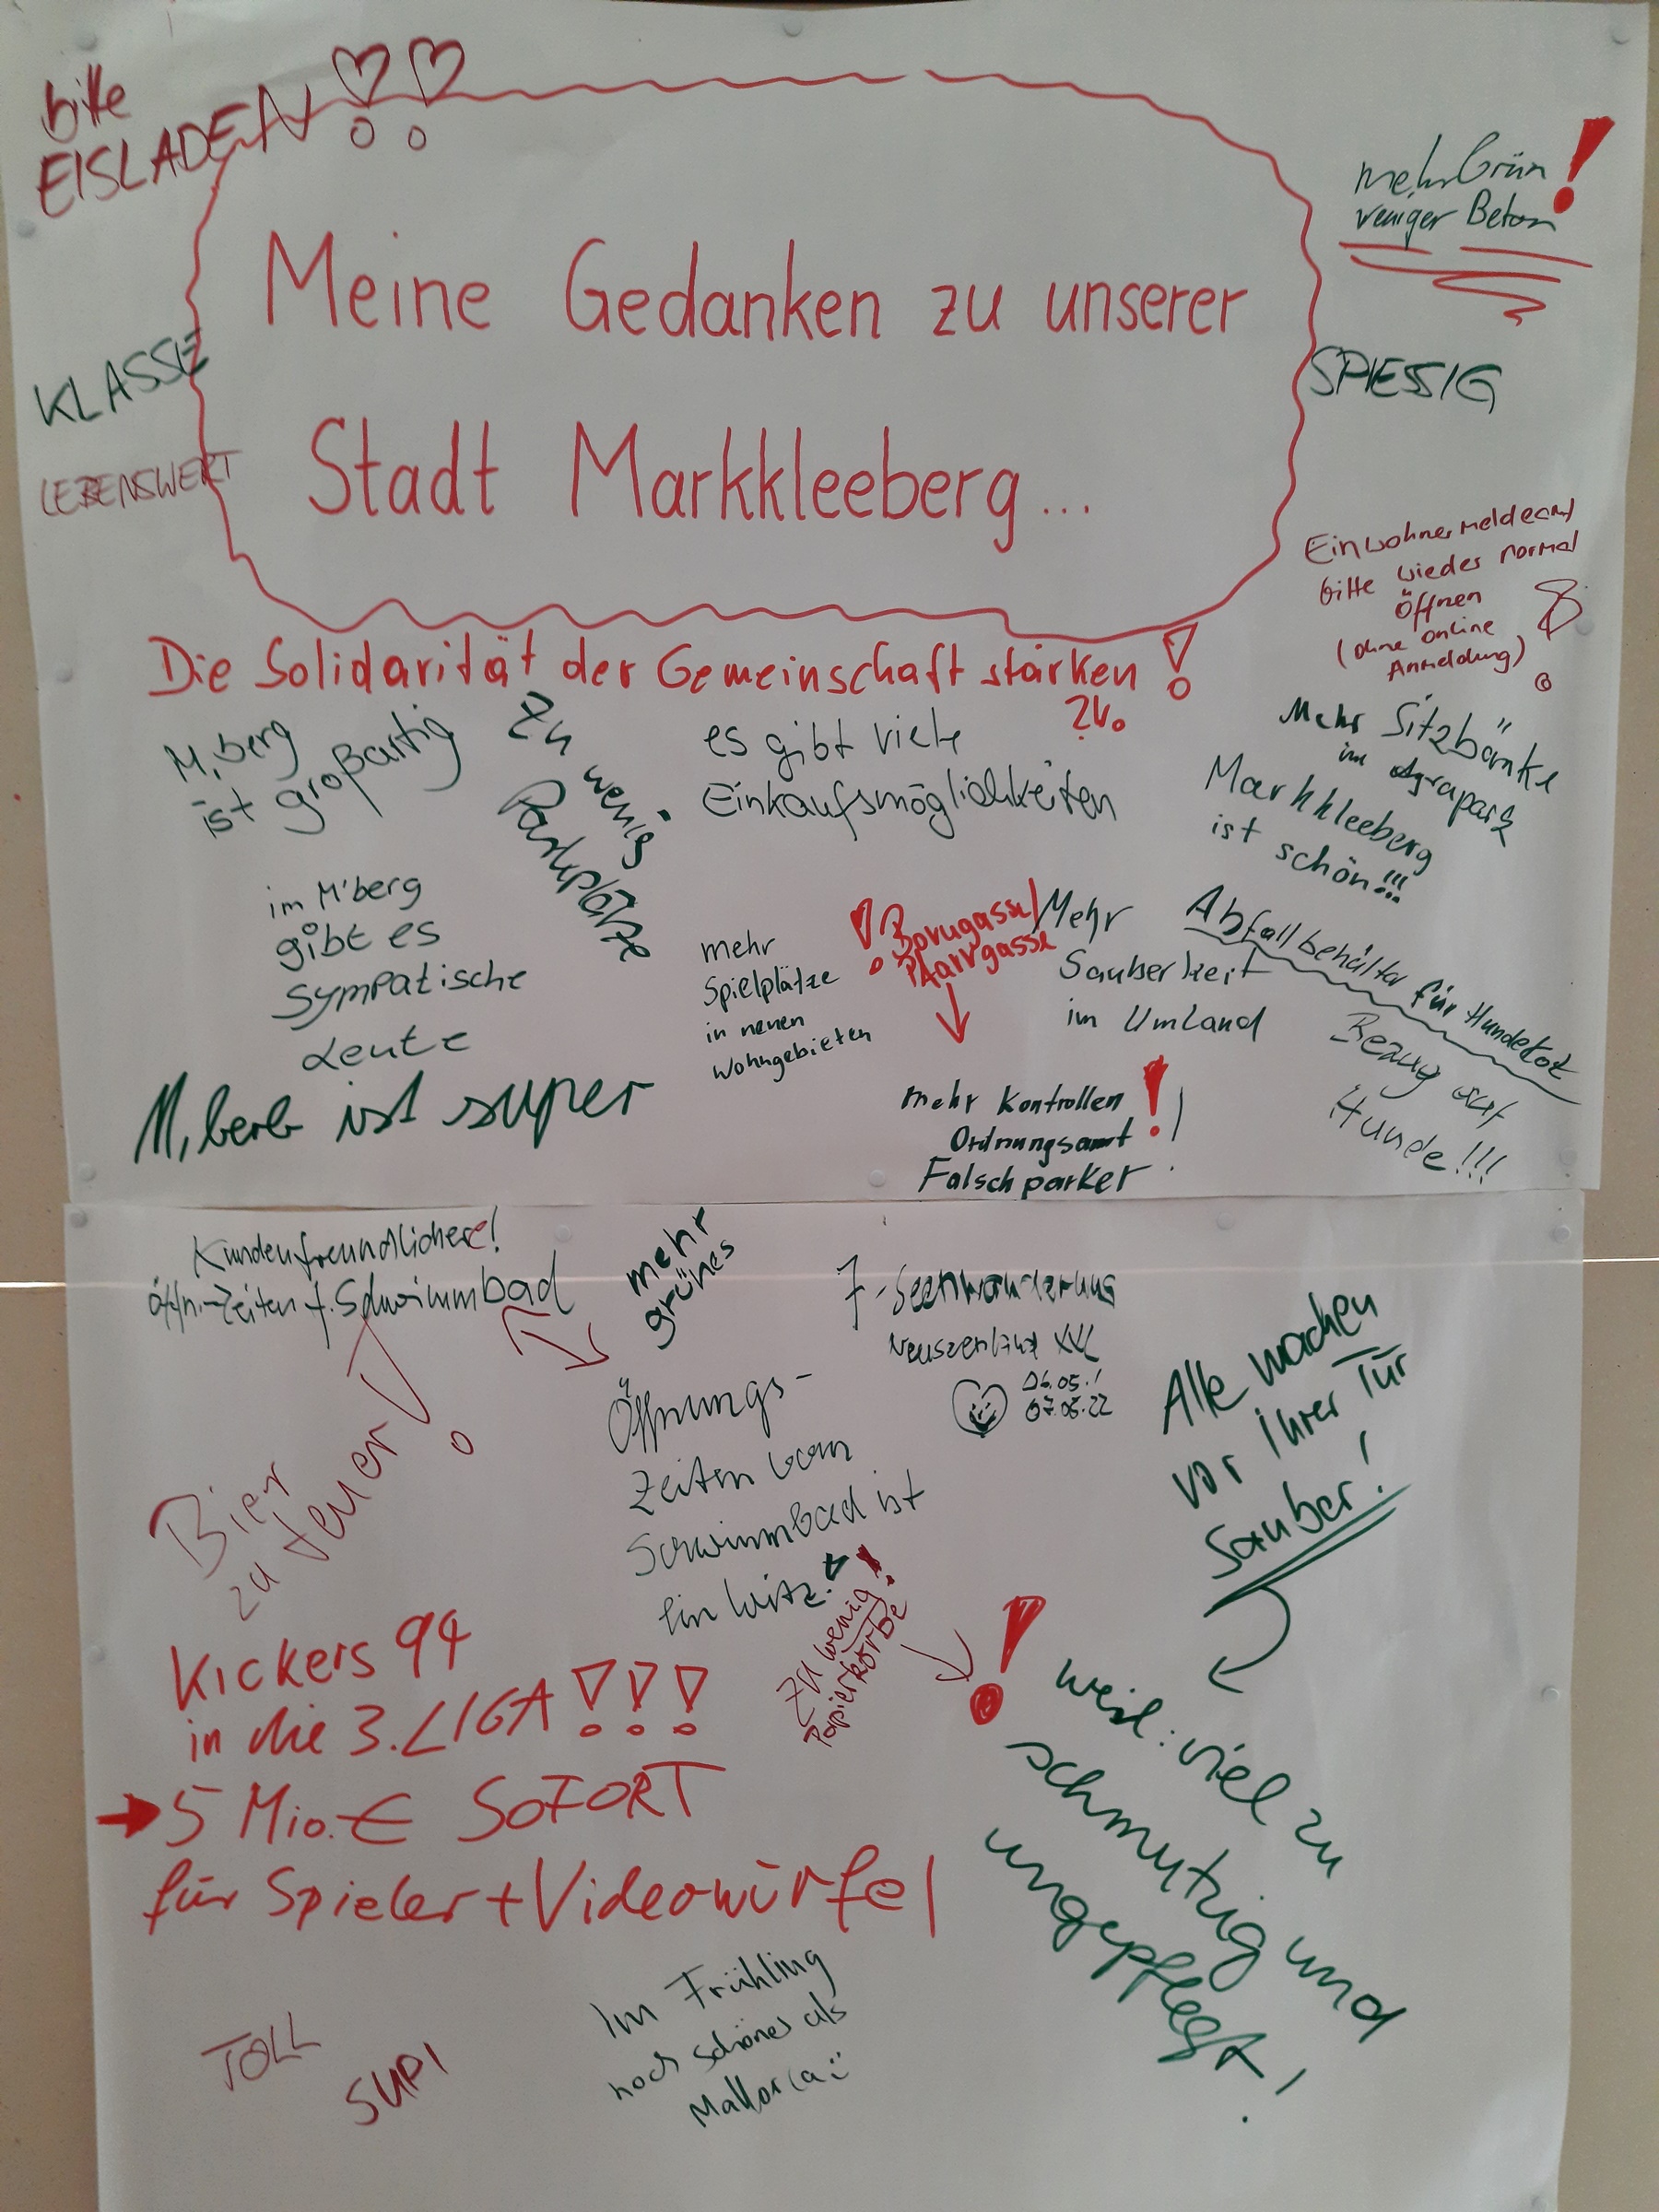 bitte
EISLADEN
Meine Gedanken zu unserer
Stadt Markkleeberg...
mehr Grün
weniger Beton!
KLASSE
LEBENSWERT
SPIESSIG
Einwohnermeldeamt
bitte wieder normal
Öffnen
(ohne online
Anmeldung)
Die Solidarität der Gemeinschaft stärken!
M,berg
ist großartig
zu wenig
Parkplätze
es gibt viele
Einkaufsmöglichkeiten
Mehr Sitzbänke
im agrapark
Markkleeberg
ist schön!!!
im M'berg
gibt es
sympatische
Leute
mehr
Spielplätze
in neuen
Wohngebieten
Pfarrgasse
Mehr
Sauberkeit
im Umland
Abfallbehälter für Hundekot
Bezug auf
Hunde!!!
M,berb ist super
mehr Kontrollen!
Ordnungsamt!
Falschparker
Kundenfreundlichere!
öffn.-Zeiten f. Schwimmbad
mehr
grünes
7-Seenwanderung
06.05./
07.05.22
Öffnungs-
Zeiten vom
Schwimmbad ist
ein Witz!
Alle machen
vor ihrer Tür
sauber!
Bier
zu teuer!
zu wenig!
Papierkörbe
Kickers 94
in die 3. LIGA!!!
5 Mio. € SOFORT
für Spieler + Videowürfel
weil: viel zu
schmutzig und
ungepflegt!
TOLL
SUPI
Im Frühling
noch schöner als
Mallorca :)